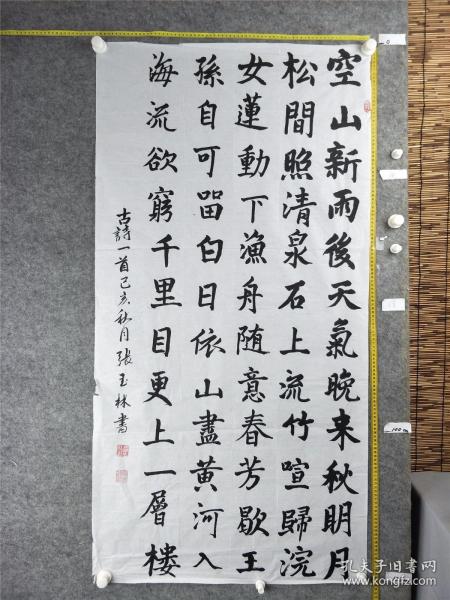 空山新雨後天氣晚来秋明月
松間照清泉石上流竹喧歸浣
女蓮動下漁舟随意春芳歇王
孫自可留白日依山盡黄河入
海流欲窮千里目更上一層楼
古詩一首己亥秋月張玉林書
孔夫子旧書网